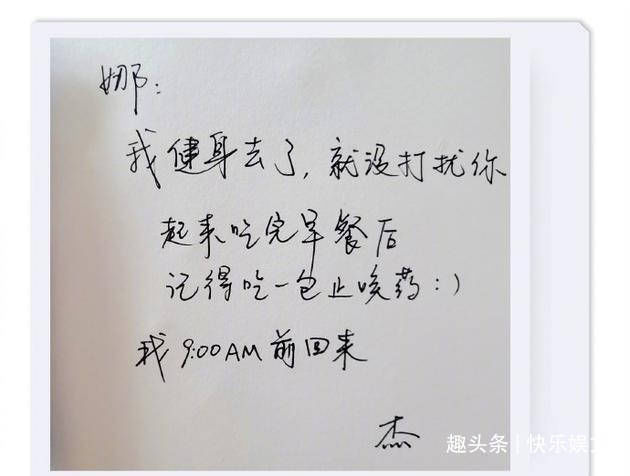 娜：
我健身去了，就没打扰你
起来吃完早餐后
记得吃一包止咳药：）
我 9:00AM 前回来
杰
趣头条 | 快乐娱